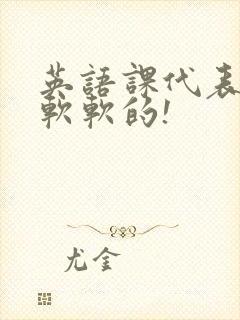 英語課代表
軟軟的!
尤金